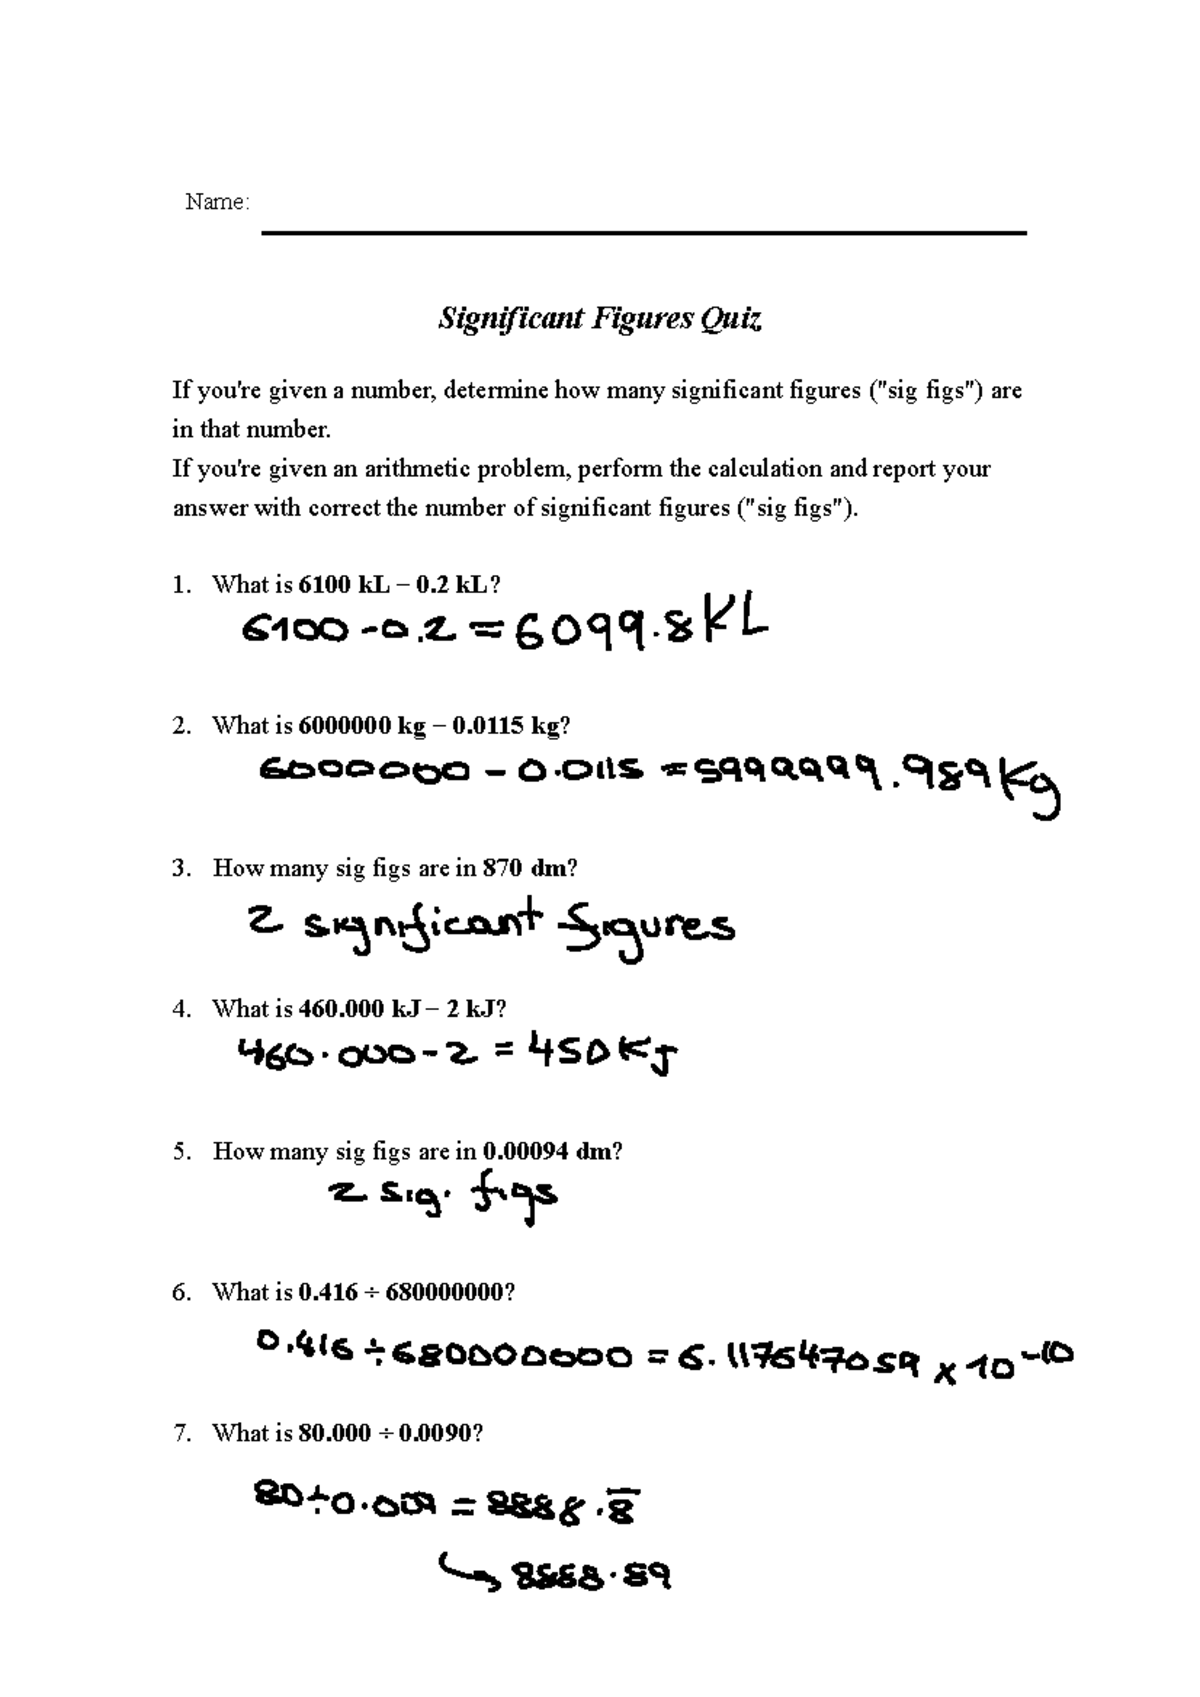 Name:
Significant Figures Quiz
If you're given a number, determine how many significant figures ("sig figs") are
in that number.
If you're given an arithmetic problem, perform the calculation and report your
answer with correct the number of significant figures ("sig figs").
1. What is 6100 kL − 0.2 kL?
6100 - 0.2 = 6099.8 KL
2. What is 6000000 kg − 0.0115 kg?
6000000 - 0.0115 = 5999999.989 Kg
3. How many sig figs are in 870 dm?
2 significant figures
4. What is 460.000 kJ − 2 kJ?
460.000 - 2 = 450 KJ
5. How many sig figs are in 0.00094 dm?
2 sig. figs
6. What is 0.416 ÷ 680000000?
0.416 ÷ 680000000 = 6.117647059 x 10⁻¹⁰
7. What is 80.000 ÷ 0.0090?
80 ÷ 0.009 = 8888.8̅
↳ 8888.89